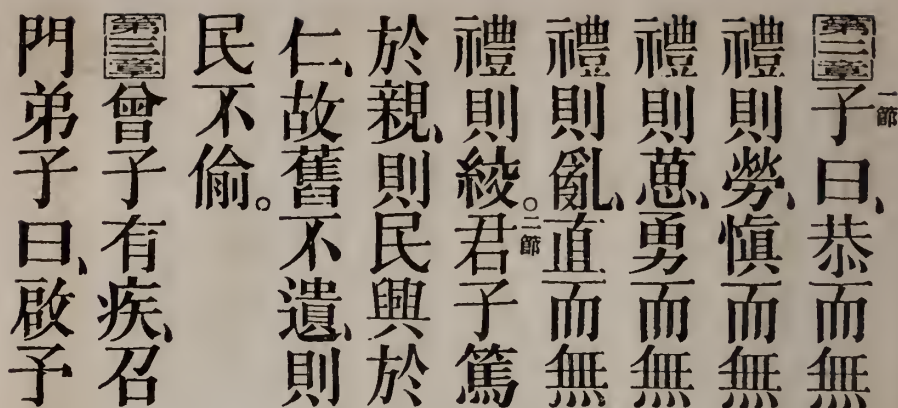 第二章 一節 子曰、恭而無
禮則勞、愼而無
禮則葸、勇而無
禮則亂、直而無
禮則絞。二節 君子篤
於親、則民興於
仁、故舊不遺、則
民不偷。
第三章 曾子有疾、召
門弟子曰、啟予